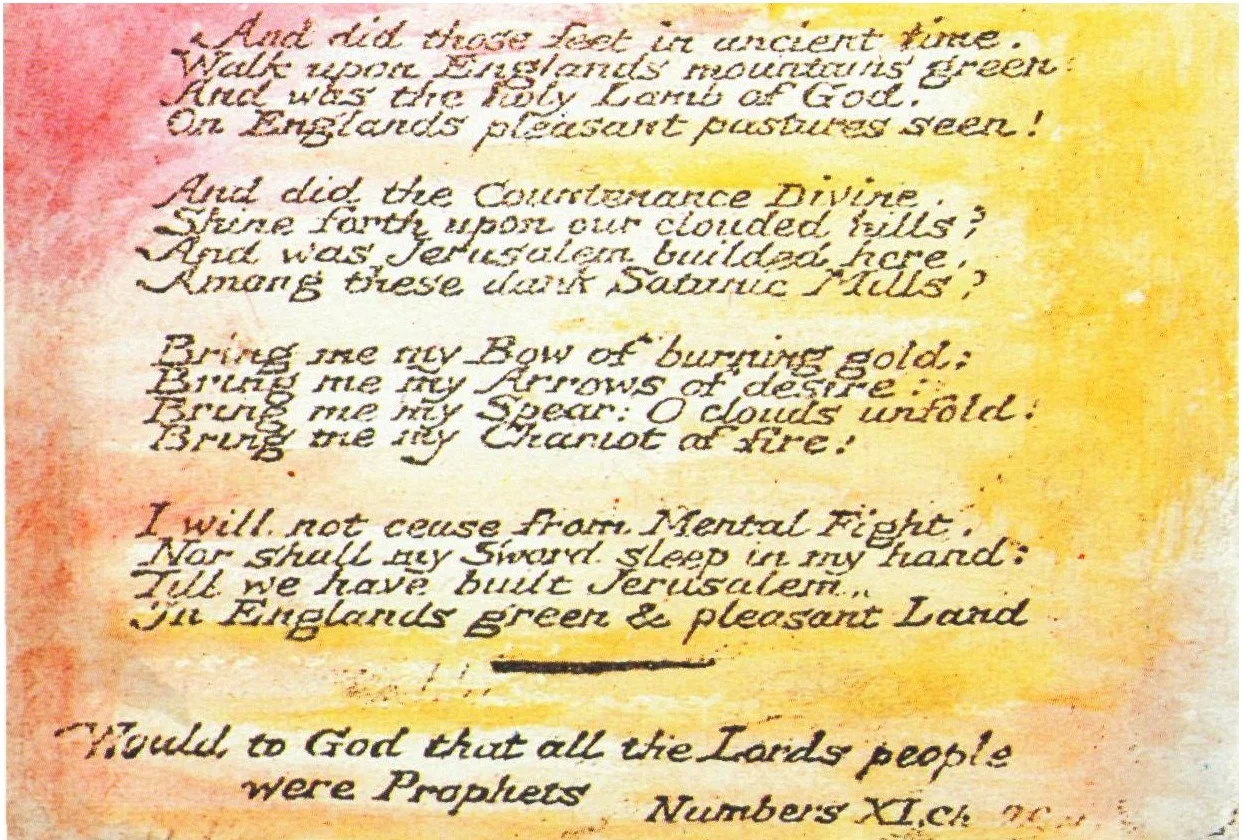 And did those feet in ancient time.
Walk upon Englands mountains green:
And was the holy Lamb of God.
On Englands pleasant pastures seen!
And did the Countenance Divine.
Shine forth upon our clouded hills?
And was Jerusalem builded here,
Among these dark Satanic Mills?
Bring me my Bow of burning gold:
Bring me my Arrows of desire:
Bring me my Spear: O clouds unfold:
Bring me my Chariot of fire!
I will not cease from Mental Fight.
Nor shall my Sword sleep in my hand:
Till we have built Jerusalem,
In Englands green & pleasant Land
Would to God that all the Lords people
were Prophets
Numbers XI.ch